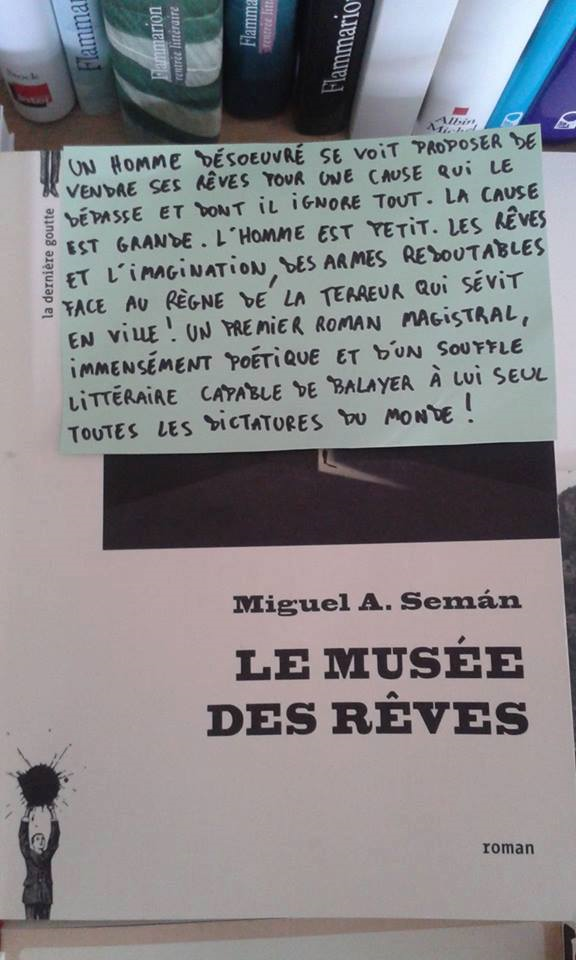 Stock
Flammarion
Flammarion
rentrée littéraire
Flammarion
rentrée littéraire
Flammarion
Albin
Michel
la dernière goutte
UN HOMME DÉSOEUVRÉ SE VOIT PROPOSER DE
VENDRE SES RÊVES POUR UNE CAUSE QUI LE
DÉPASSE ET DONT IL IGNORE TOUT. LA CAUSE
EST GRANDE. L'HOMME EST PETIT. LES RÊVES
ET L'IMAGINATION, DES ARMES REDOUTABLES
FACE AU RÈGNE DE LA TERREUR QUI SÉVIT
EN VILLE! UN PREMIER ROMAN MAGISTRAL,
IMMENSÉMENT POÉTIQUE ET D'UN SOUFFLE
LITTÉRAIRE CAPABLE DE BALAYER À LUI SEUL
TOUTES LES DICTATURES DU MONDE!
Miguel A. Semán
LE MUSÉE
DES RÊVES
roman